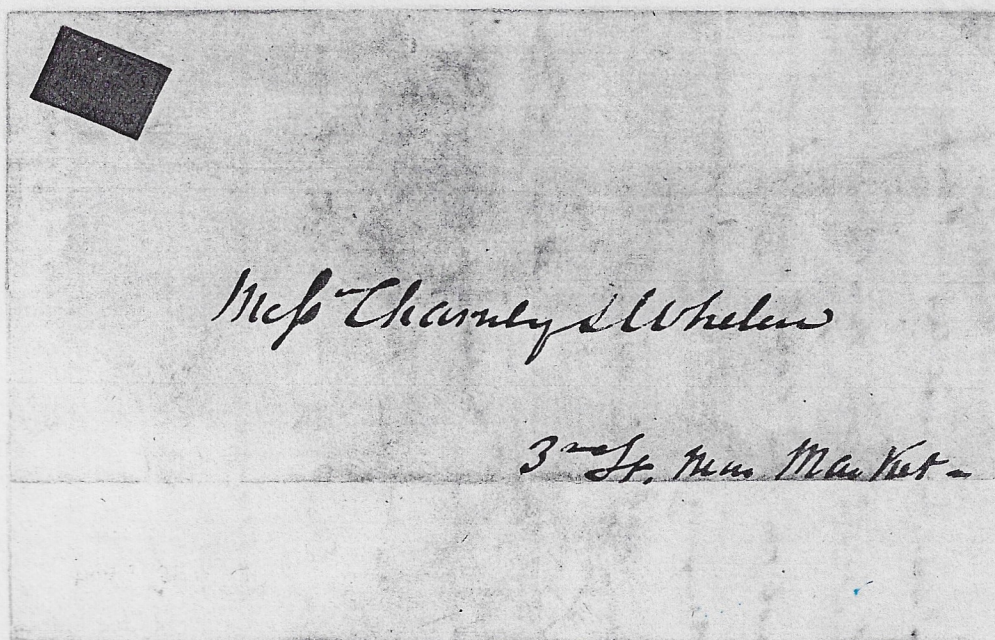 Messrs Charnley & Whelen
3rd St. near Market -